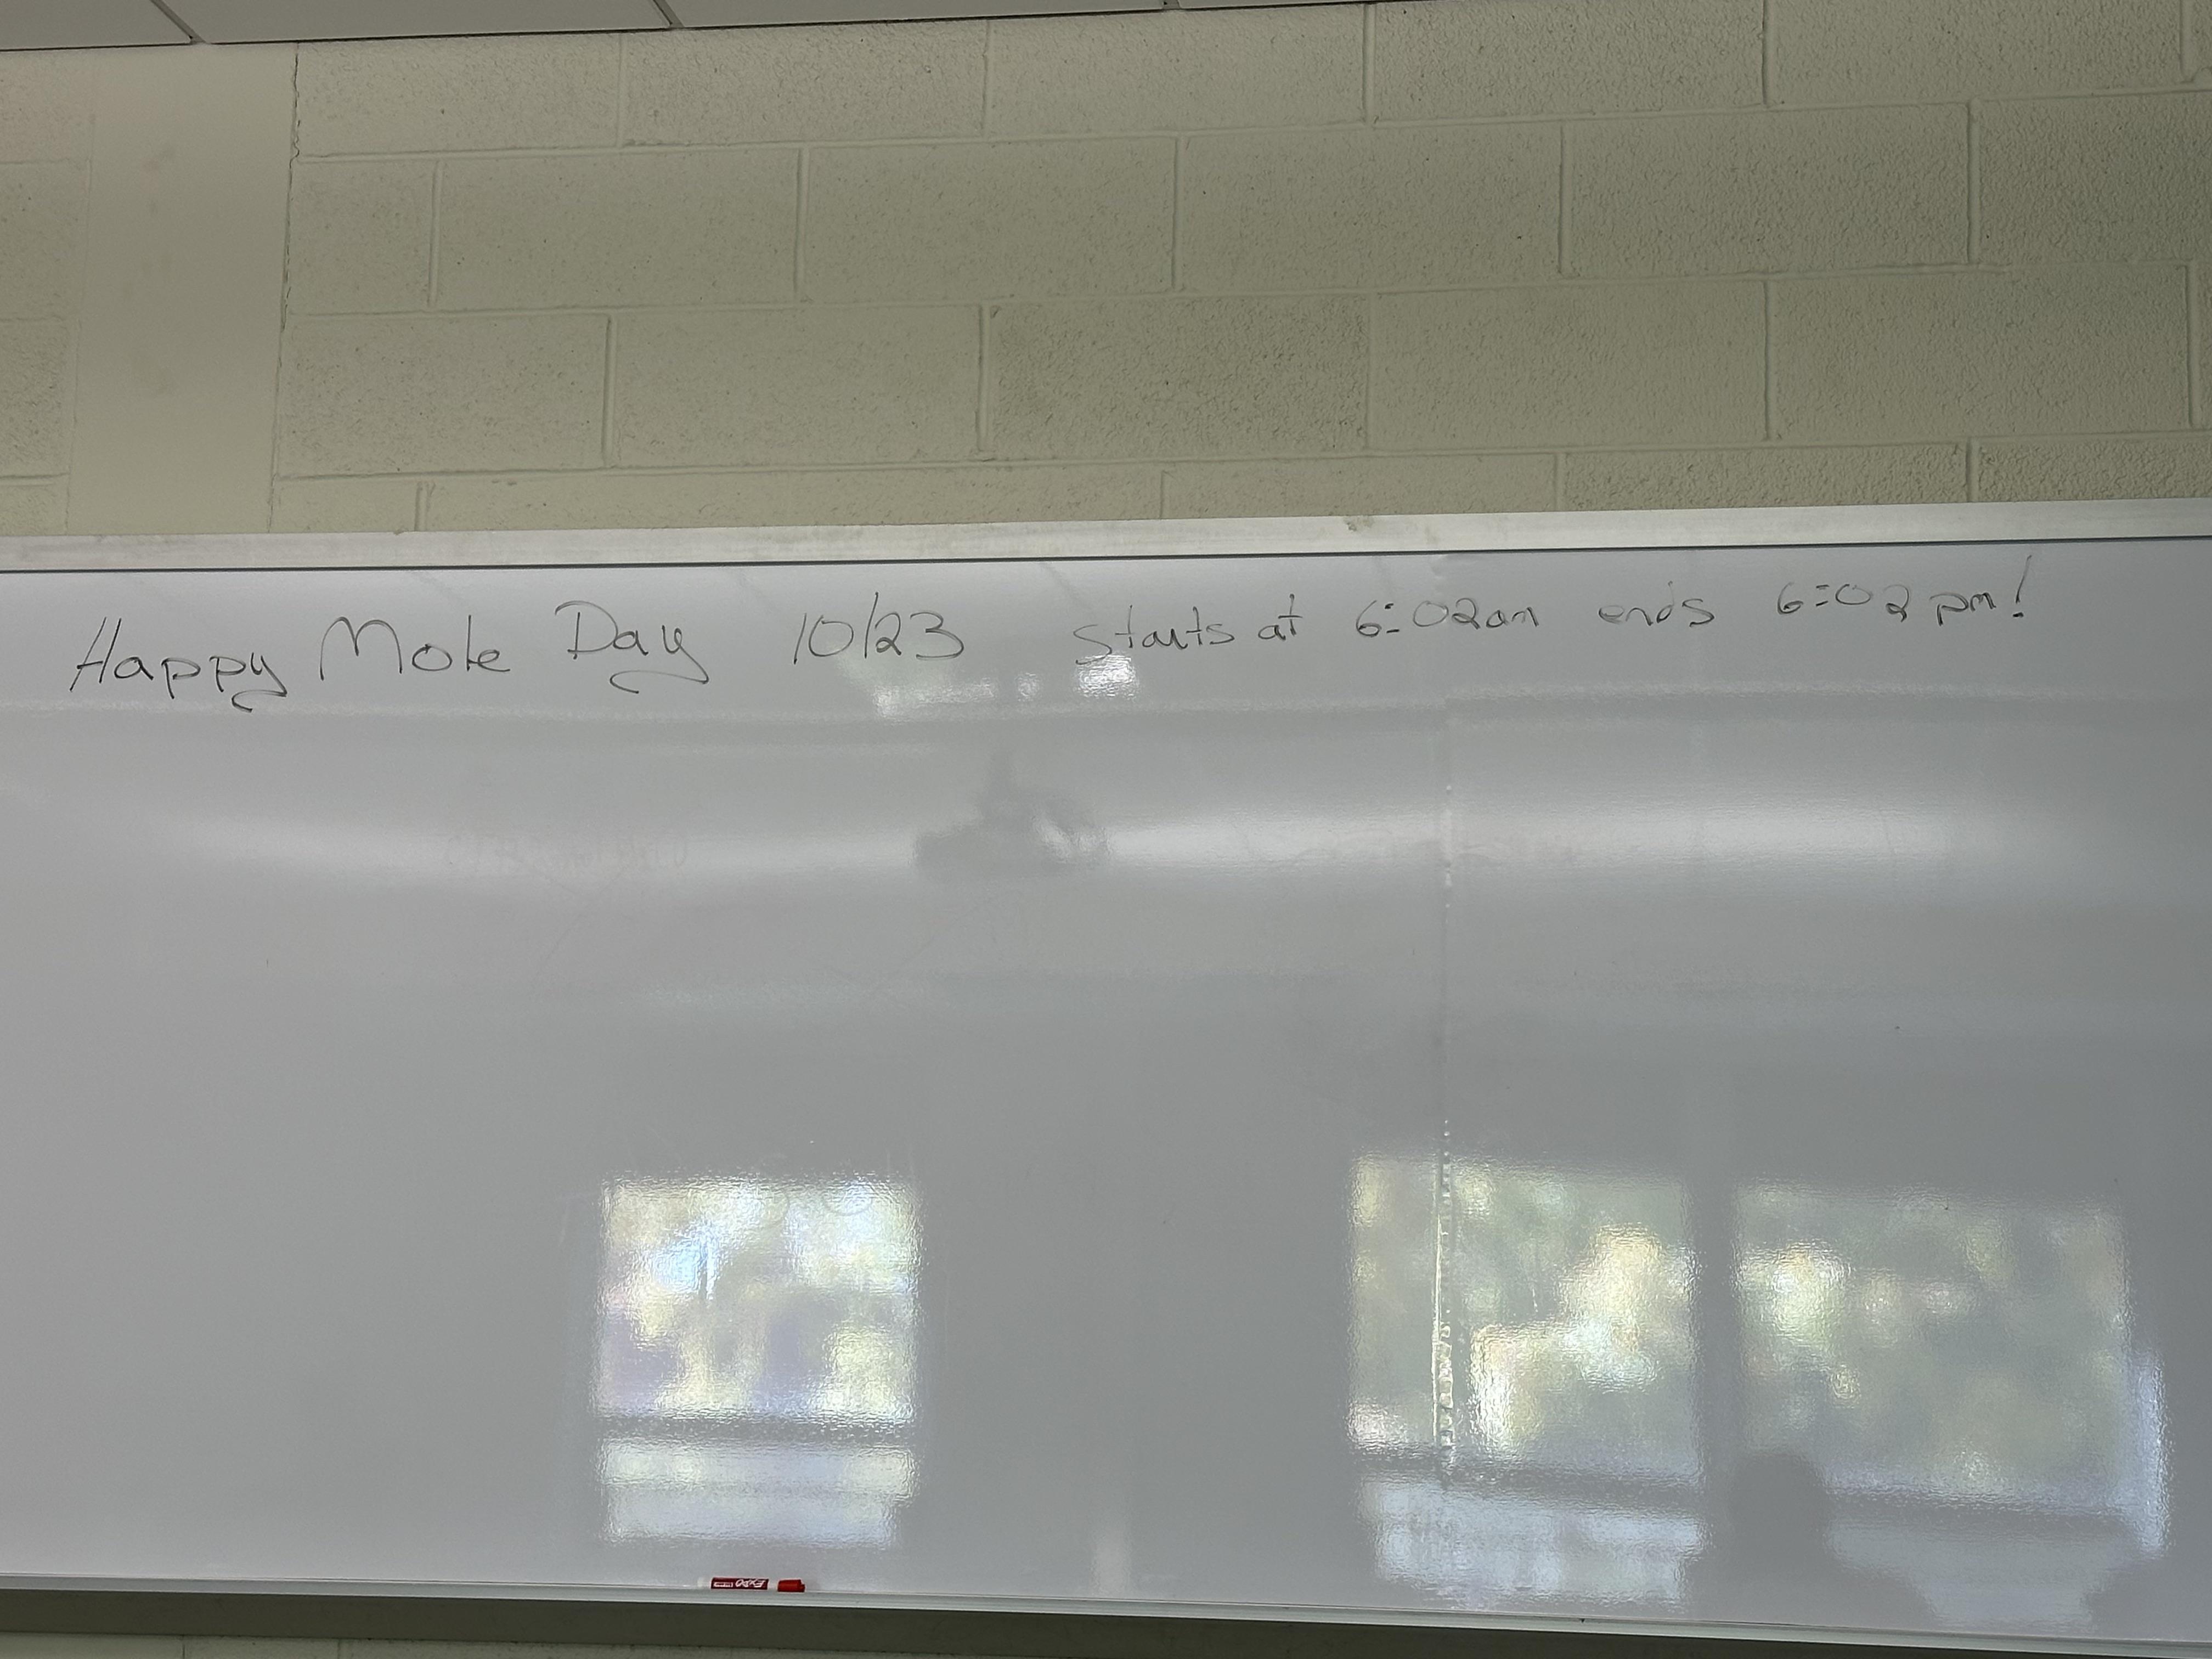 Happy Mole Day 10/23 Starts at 6:02am ends 6:02pm!
EXPO